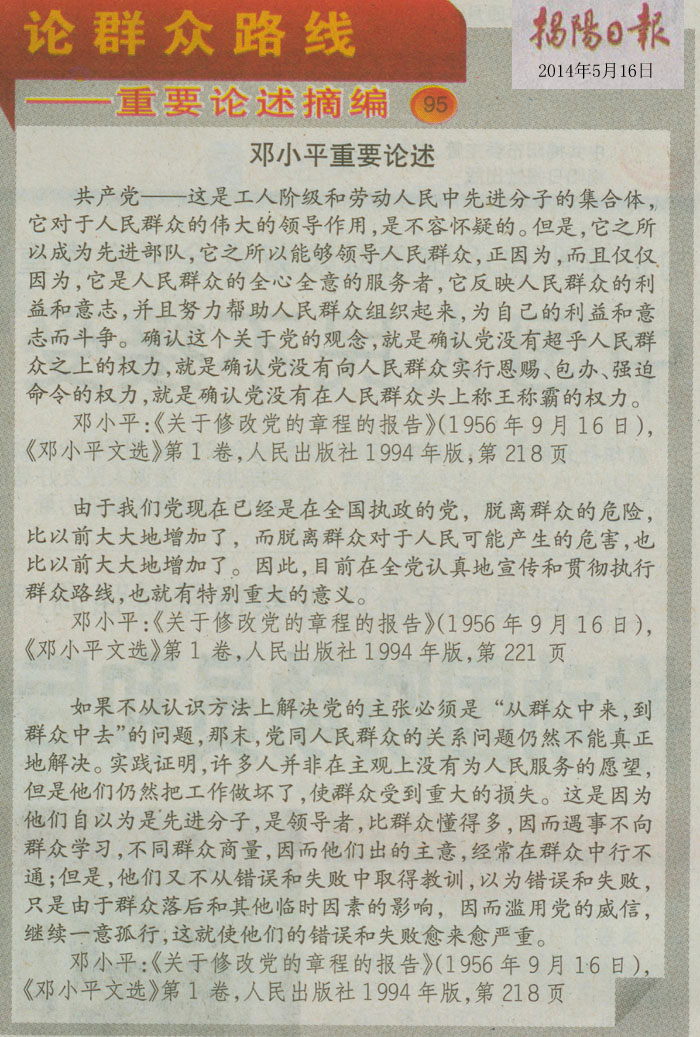 论群众路线
揭陽日報
2014年5月16日
——重要论述摘编 95
邓小平重要论述
共产党——这是工人阶级和劳动人民中先进分子的集合体，
它对于人民群众的伟大的领导作用，是不容怀疑的。但是，它之所
以成为先进部队，它之所以能够领导人民群众，正因为，而且仅仅
因为，它是人民群众的全心全意的服务者，它反映人民群众的利
益和意志，并且努力帮助人民群众组织起来，为自己的利益和意
志而斗争。确认这个关于党的观念，就是确认党没有超乎人民群
众之上的权力，就是确认党没有向人民群众实行恩赐、包办、强迫
命令的权力，就是确认党没有在人民群众头上称王称霸的权力。
邓小平：《关于修改党的章程的报告》（1956年9月16日），
《邓小平文选》第1卷，人民出版社1994年版，第218页
由于我们党现在已经是在全国执政的党，脱离群众的危险，
比以前大大地增加了，而脱离群众对于人民可能产生的危害，也
比以前大大地增加了。因此，目前在全党认真地宣传和贯彻执行
群众路线，也就有特别重大的意义。
邓小平：《关于修改党的章程的报告》（1956年9月16日），
《邓小平文选》第1卷，人民出版社1994年版，第221页
如果不从认识方法上解决党的主张必须是“从群众中来，到
群众中去”的问题，那末，党同人民群众的关系问题仍然不能真正
地解决。实践证明，许多人并非在主观上没有为人民服务的愿望，
但是他们仍然把工作做坏了，使群众受到重大的损失。这是因为
他们自以为是先进分子，是领导者，比群众懂得多，因而遇事不向
群众学习，不同群众商量，因而他们出的主意，经常在群众中行不
通；但是，他们又不从错误和失败中取得教训，以为错误和失败，
只是由于群众落后和其他临时因素的影响，因而滥用党的威信，
继续一意孤行，这就使他们的错误和失败愈来愈严重。
邓小平：《关于修改党的章程的报告》（1956年9月16日），
《邓小平文选》第1卷，人民出版社1994年版，第218页